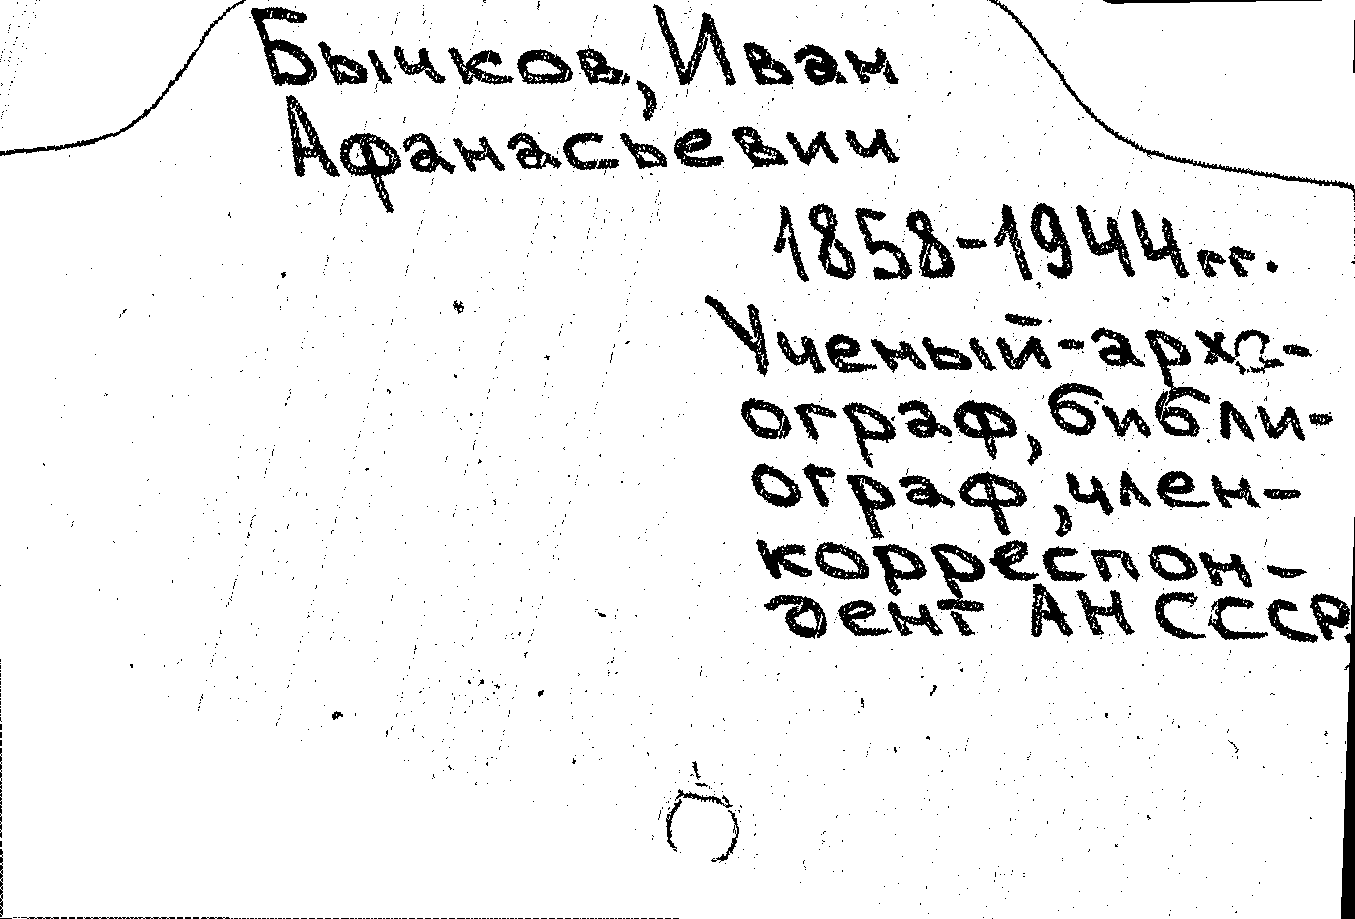 Бычков, Иван
Афанасьевич
1858-1944гг.
Ученый-архе-
ограф, библи-
ограф, член-
корреспон-
дент АН СССР.